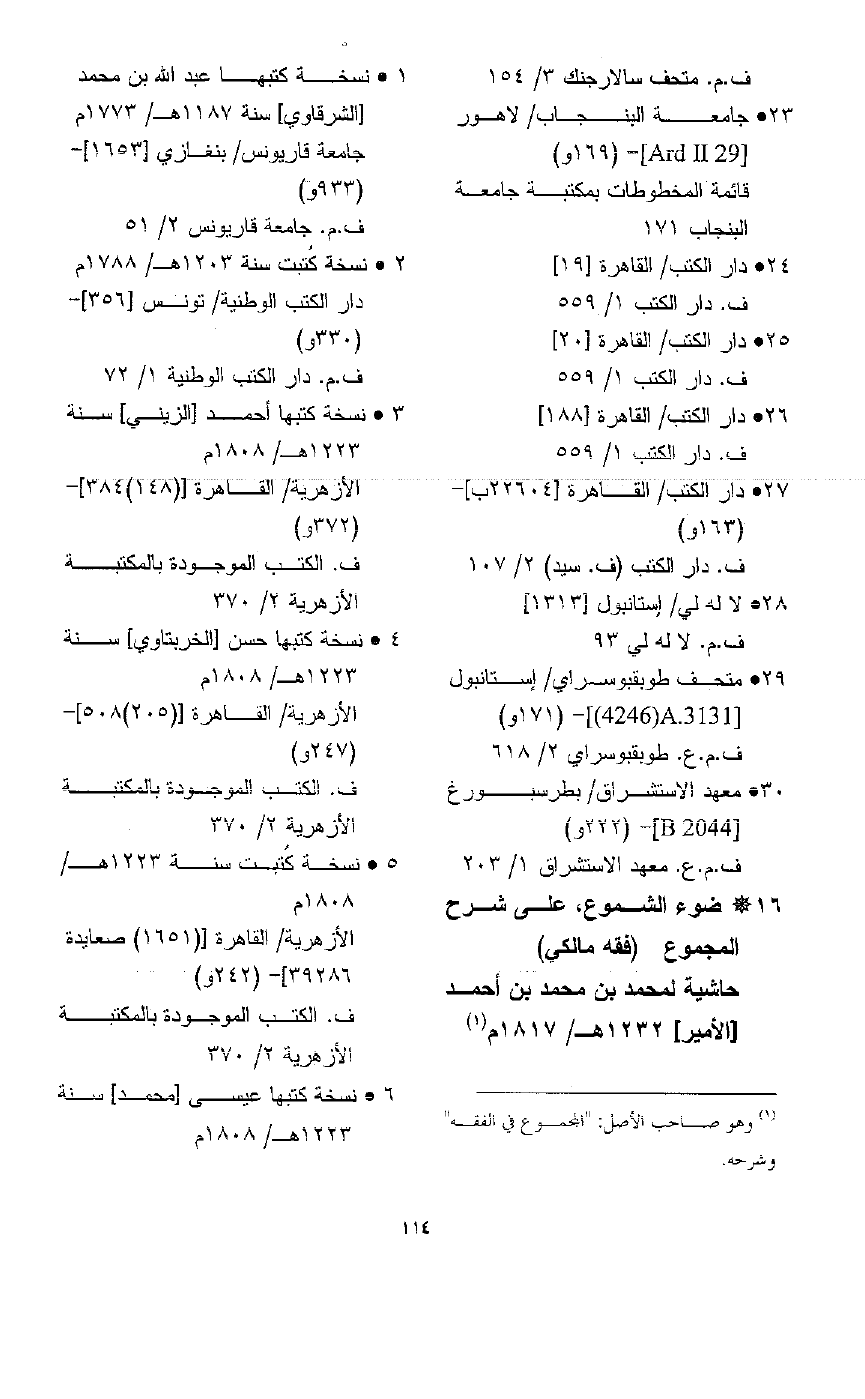 ف.م. متحف سالارجنك ٣/ ١٥٤
٢٣• جامعة البنجاب/ لاهور
[Ard II 29]– (١٦٩و)
قائمة المخطوطات بمكتبة جامعة
البنجاب ١٧١
٢٤• دار الكتب/ القاهرة [١٩]
ف. دار الكتب ١/ ٥٥٩
٢٥• دار الكتب/ القاهرة [٢٠]
ف. دار الكتب ١/ ٥٥٩
٢٦• دار الكتب/ القاهرة [١٨٨]
ف. دار الكتب ١/ ٥٥٩
٢٧• دار الكتب/ القاهرة [٢٢٦٠٤ب]–
(١٦٣و)
ف. دار الكتب (ف. سيد) ٢/ ١٠٧
٢٨• لا له لي/ إستانبول [١٣١٣]
ف.م. لا له لي ٩٣
٢٩• متحف طوبقبوسراي/ إستانبول
[A.3131(4246)]– (١٧١و)
ف.م.ع. طوبقبوسراي ٢/ ٦١٨
٣٠• معهد الاستشراق/ بطرسبورغ
[B 2044]– (٢٢٢و)
ف.م.ع. معهد الاستشراق ١/ ٢٠٣
١٦ ❋ ضوء الشموع، على شرح
المجموع (فقه مالكي)
حاشية لمحمد بن محمد بن أحمد
[الأمير] ١٢٣٢هـ/ ١٨١٧م(١)
(١) وهو صاحب الأصل: "المجموع في الفقه"
وشرحه.
١ • نسخة كتبها عبد الله بن محمد
[الشرقاوي] سنة ١١٨٧هـ/ ١٧٧٣م
جامعة قاريونس/ بنغازي [١٦٥٣]–
(٩٣٣و)
ف.م. جامعة قاريونس ٢/ ٥١
٢ • نسخة كُتبت سنة ١٢٠٣هـ/ ١٧٨٨م
دار الكتب الوطنية/ تونس [٣٥٦]–
(٣٣٠و)
ف.م. دار الكتب الوطنية ١/ ٧٢
٣ • نسخة كتبها أحمد [الزيني] سنة
١٢٢٣هـ/ ١٨٠٨م
الأزهرية/ القاهرة [(١٤٨)٣٨٤]–
(٣٧٢و)
ف. الكتب الموجودة بالمكتبة
الأزهرية ٢/ ٣٧٠
٤ • نسخة كتبها حسن [الخربتاوي] سنة
١٢٢٣هـ/ ١٨٠٨م
الأزهرية/ القاهرة [(٢٠٥)٥٠٨]–
(٢٤٧و)
ف. الكتب الموجودة بالمكتبة
الأزهرية ٢/ ٣٧٠
٥ • نسخة كُتبت سنة ١٢٢٣هـ/
١٨٠٨م
الأزهرية/ القاهرة [(١٦٥١) صعايدة
٣٩٢٨٦]– (٢٤٢و)
ف. الكتب الموجودة بالمكتبة
الأزهرية ٢/ ٣٧٠
٦ • نسخة كتبها عيسى [محمد] سنة
١٢٢٣هـ/ ١٨٠٨م
١١٤